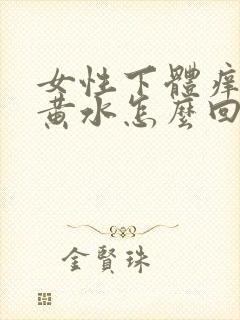 女性下體痒
黃水怎麼回
金賢珠